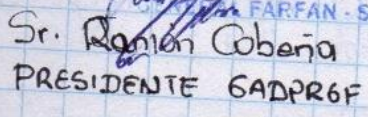 FARFAN - S
Sr. Ramón Cobeña
PRESIDENTE GADPRGF